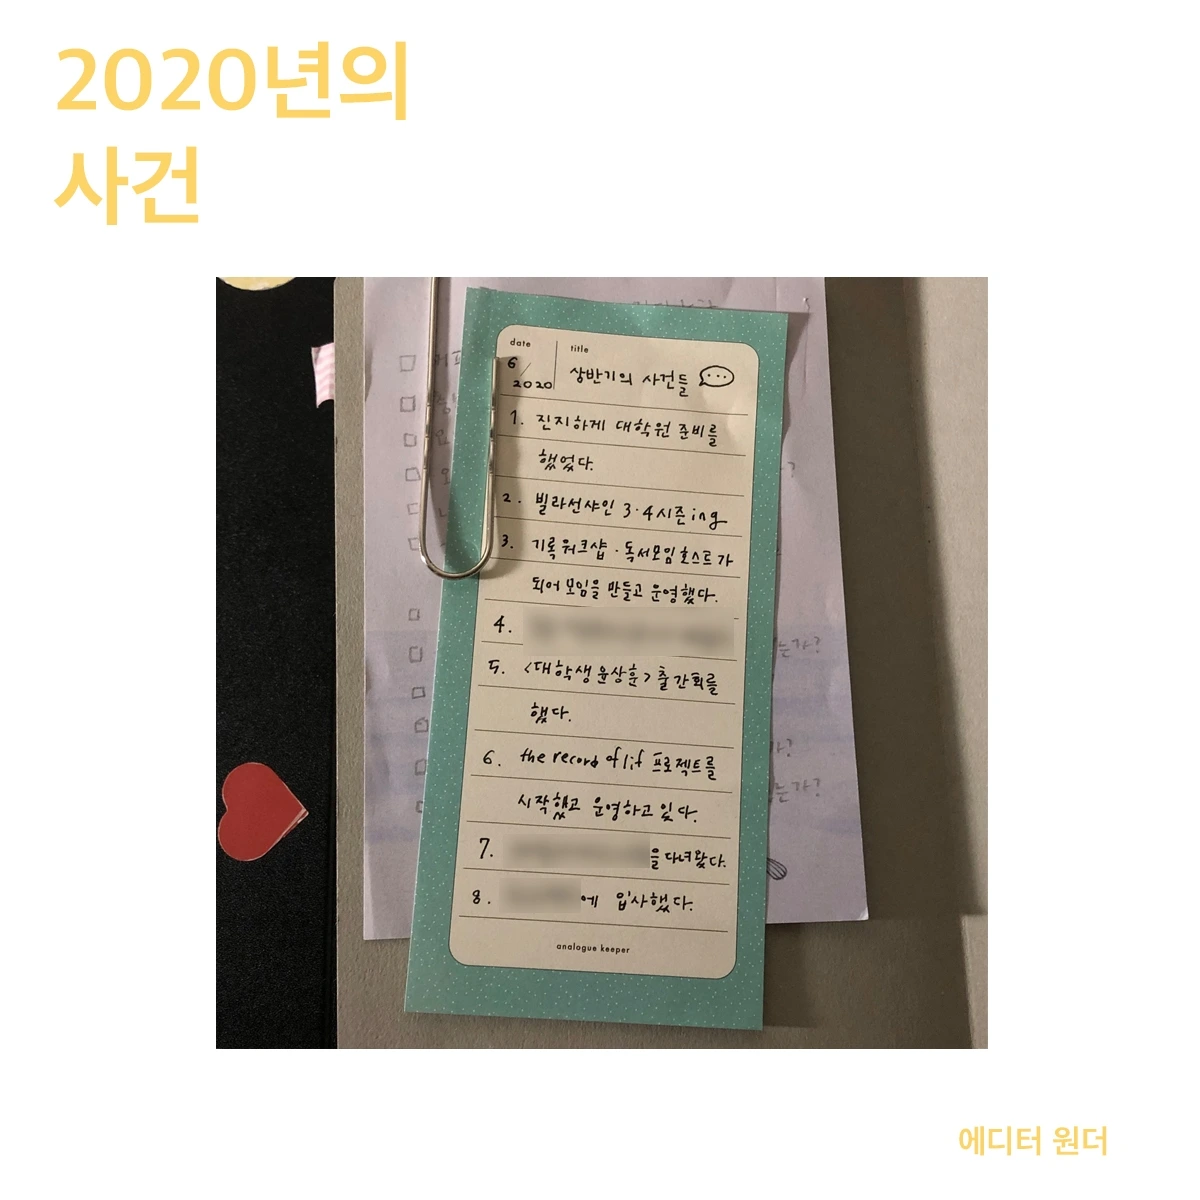 2020년의
사건
date
title
6/2020
상반기의 사건들
1. 진지하게 대학원 준비를
했었다.
2. 빌라선샤인 3·4시즌 ing
3. 기록워크샵·독서모임 호스트가
되어 모임을 만들고 운영했다.
4.
5. <대학생 윤상훈> 출간회를
했다.
6. the record of lif 프로젝트를
시작했고 운영하고 있다.
7. 을 다녀왔다.
8. 에 입사했다.
analogue keeper
는가?
가?
는가?
에디터 원더